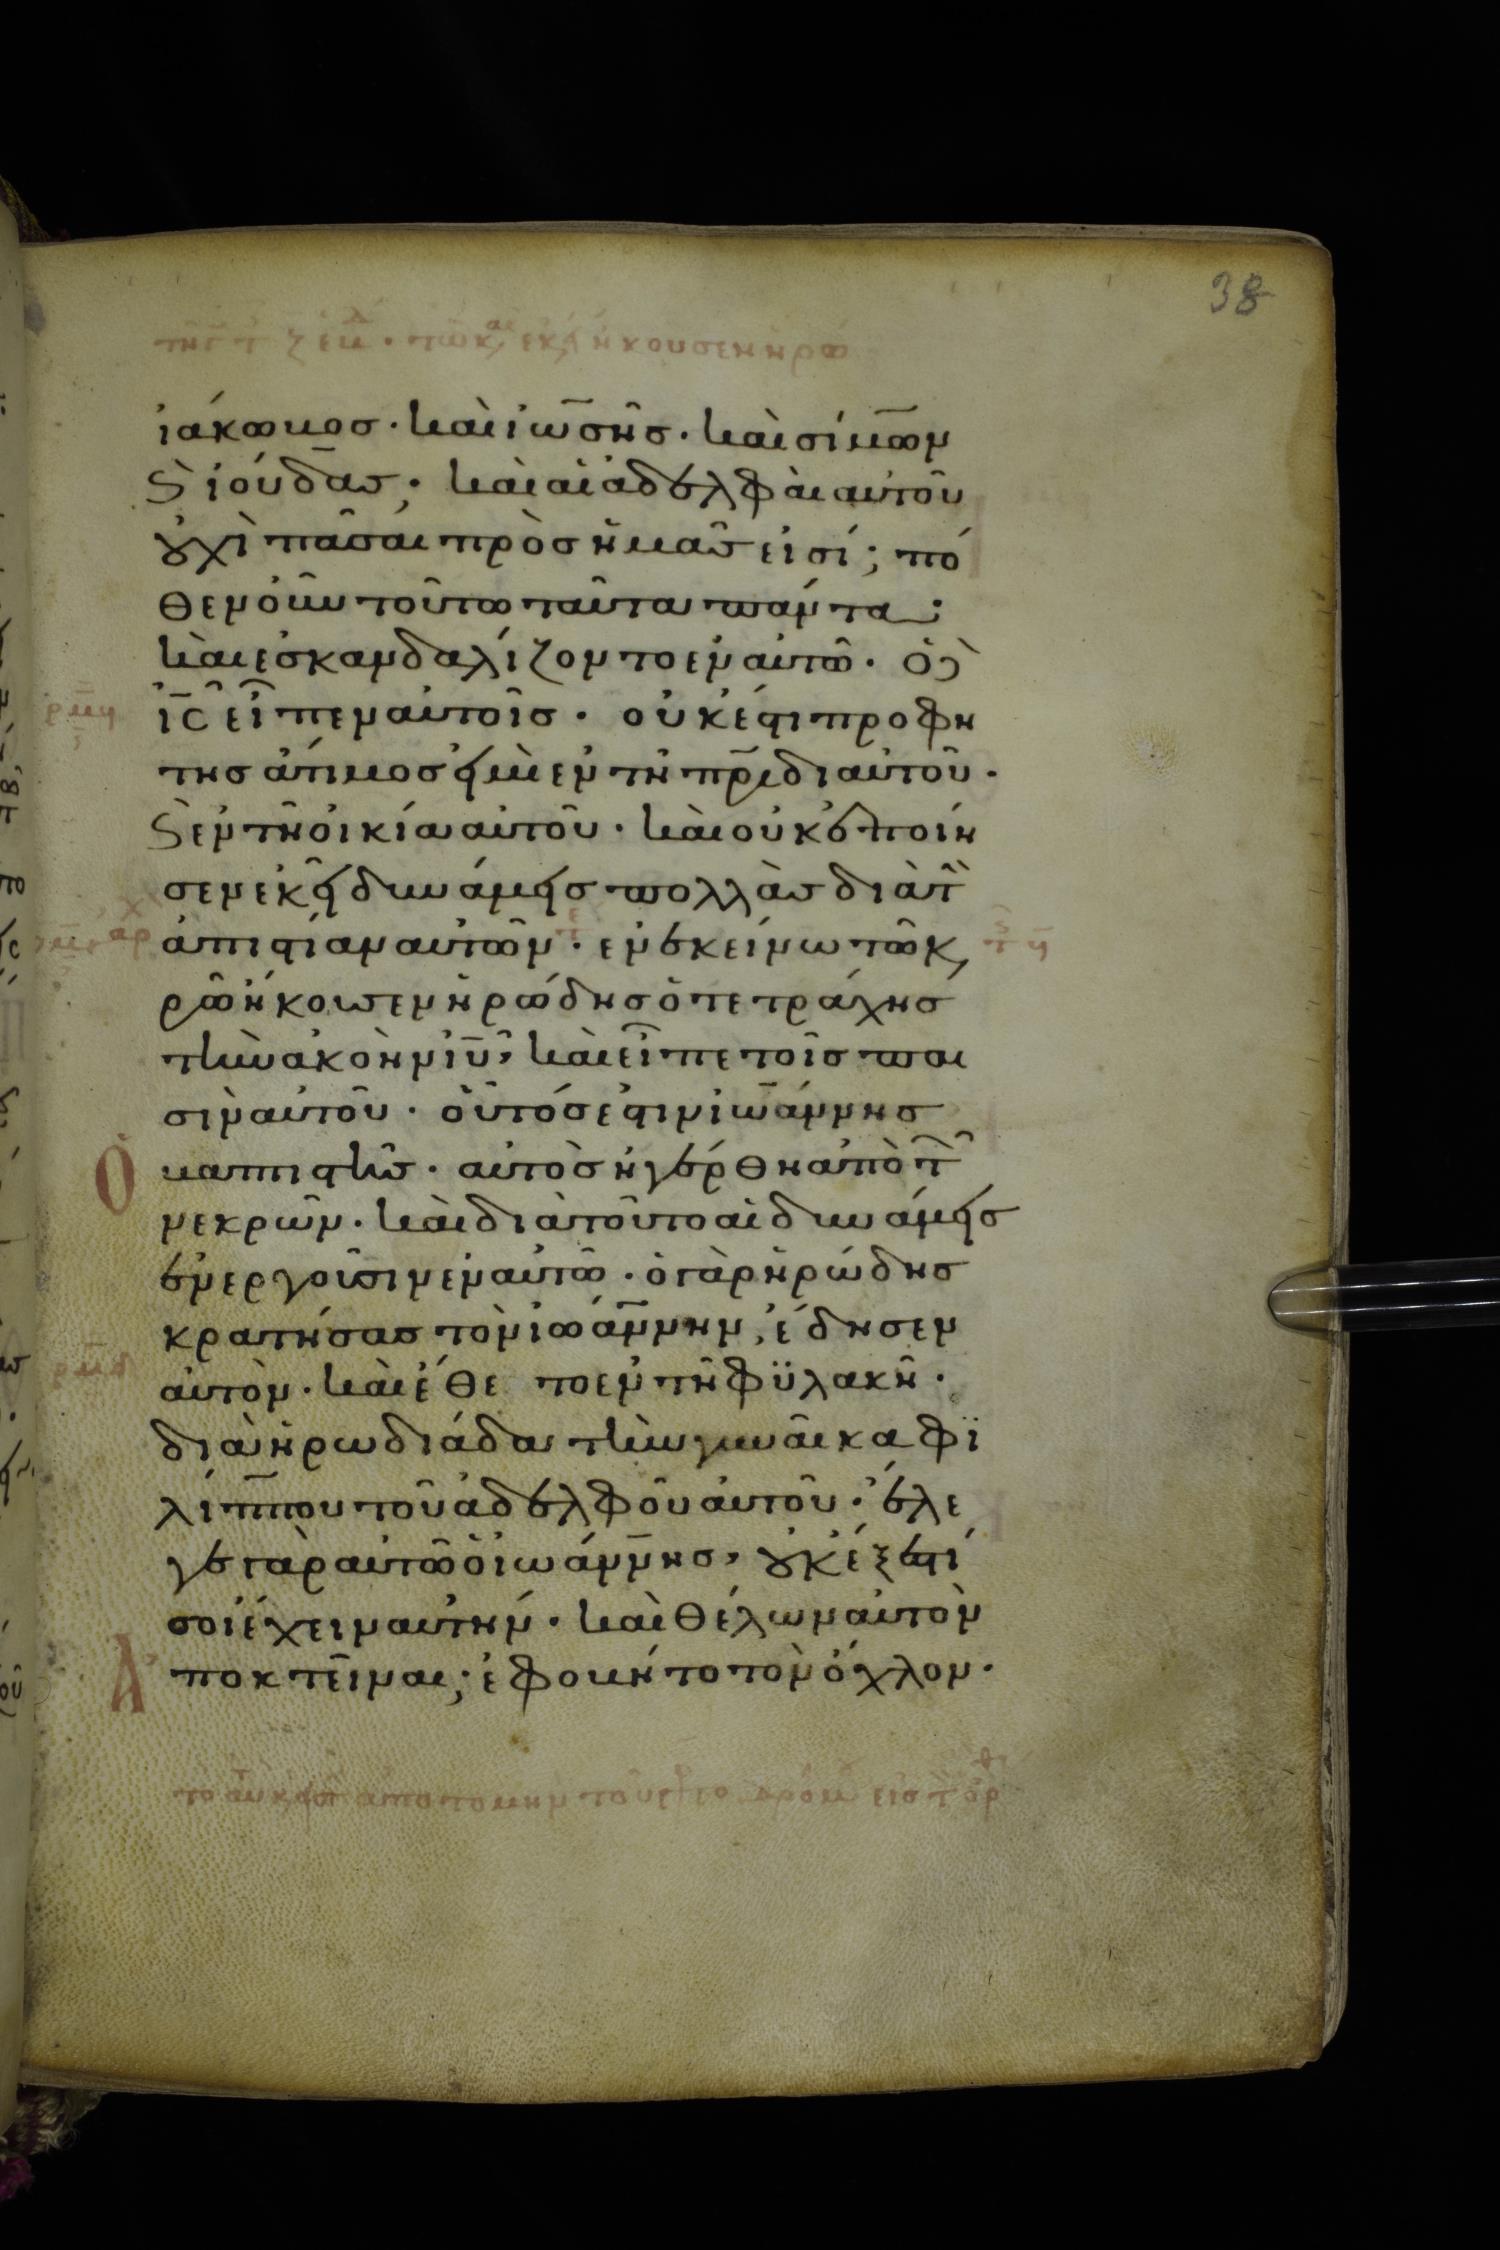 38
ἰάκωβος · καὶ ἰωσῆς · καὶ σίμων
ϗ ἰούδας; καὶ αἱ ἀδελφαὶ αὐτοῦ
οὐχὶ πᾶσαι πρὸς ἡμᾶς εἰσί; πό
θεν οὖν τούτω ταῦτα πάντα;
καὶ ἐσκανδαλίζοντο ἐν αὐτῶ · ὁ δὲ
ἰς εἶπεν αὐτοῖς · οὐκ ἔστι προφή
της ἄτιμος εἰ μὴ ἐν τῆ πρίδι αὐτοῦ ·
ϗ ἐν τῆ οἰκία αὐτοῦ · καὶ οὐκ ἐποίη
σεν ἐκεῖ δυνάμεις πολλὰς διὰ τὴν
ἀπιστίαν αὐτῶν · ἐν ἐκείνω τῶ κ
ρῶ ἤκουσεν ἡρώδης ὁ τετράχης
τὴν ἀκοὴν ἰυ, καὶ εἶπε τοῖς παι
σὶν αὐτοῦ · οὗτός ἐστιν ἰωάννης
ὁ βαπτιστὴς · αὐτὸς ἠγέρθη ἀπὸ τῶν
νεκρῶν · καὶ διὰ τοῦτο αἱ δυνάμεις
ἐνεργοῦσιν ἐν αὐτῶ · ὁ γὰρ ἡρώδης
κρατήσας τὸν ἰωάννην, ἔδησεν
αὐτὸν · καὶ ἔθετο ἐν τῆ φϋλακῆ ·
διὰ ἡρωδιάδα τὴν γυναῖκα φι
λίππου τοῦ ἀδελφοῦ αὐτοῦ · ἔλε
γε γὰρ αὐτῶ ὁ ἰωάννης, οὐκ ἔξεστί
σοι ἔχειν αὐτήν · καὶ θέλων αὐτὸν
ἀποκτεῖναι; ἐφοβήτο τὸν ὄχλον ·